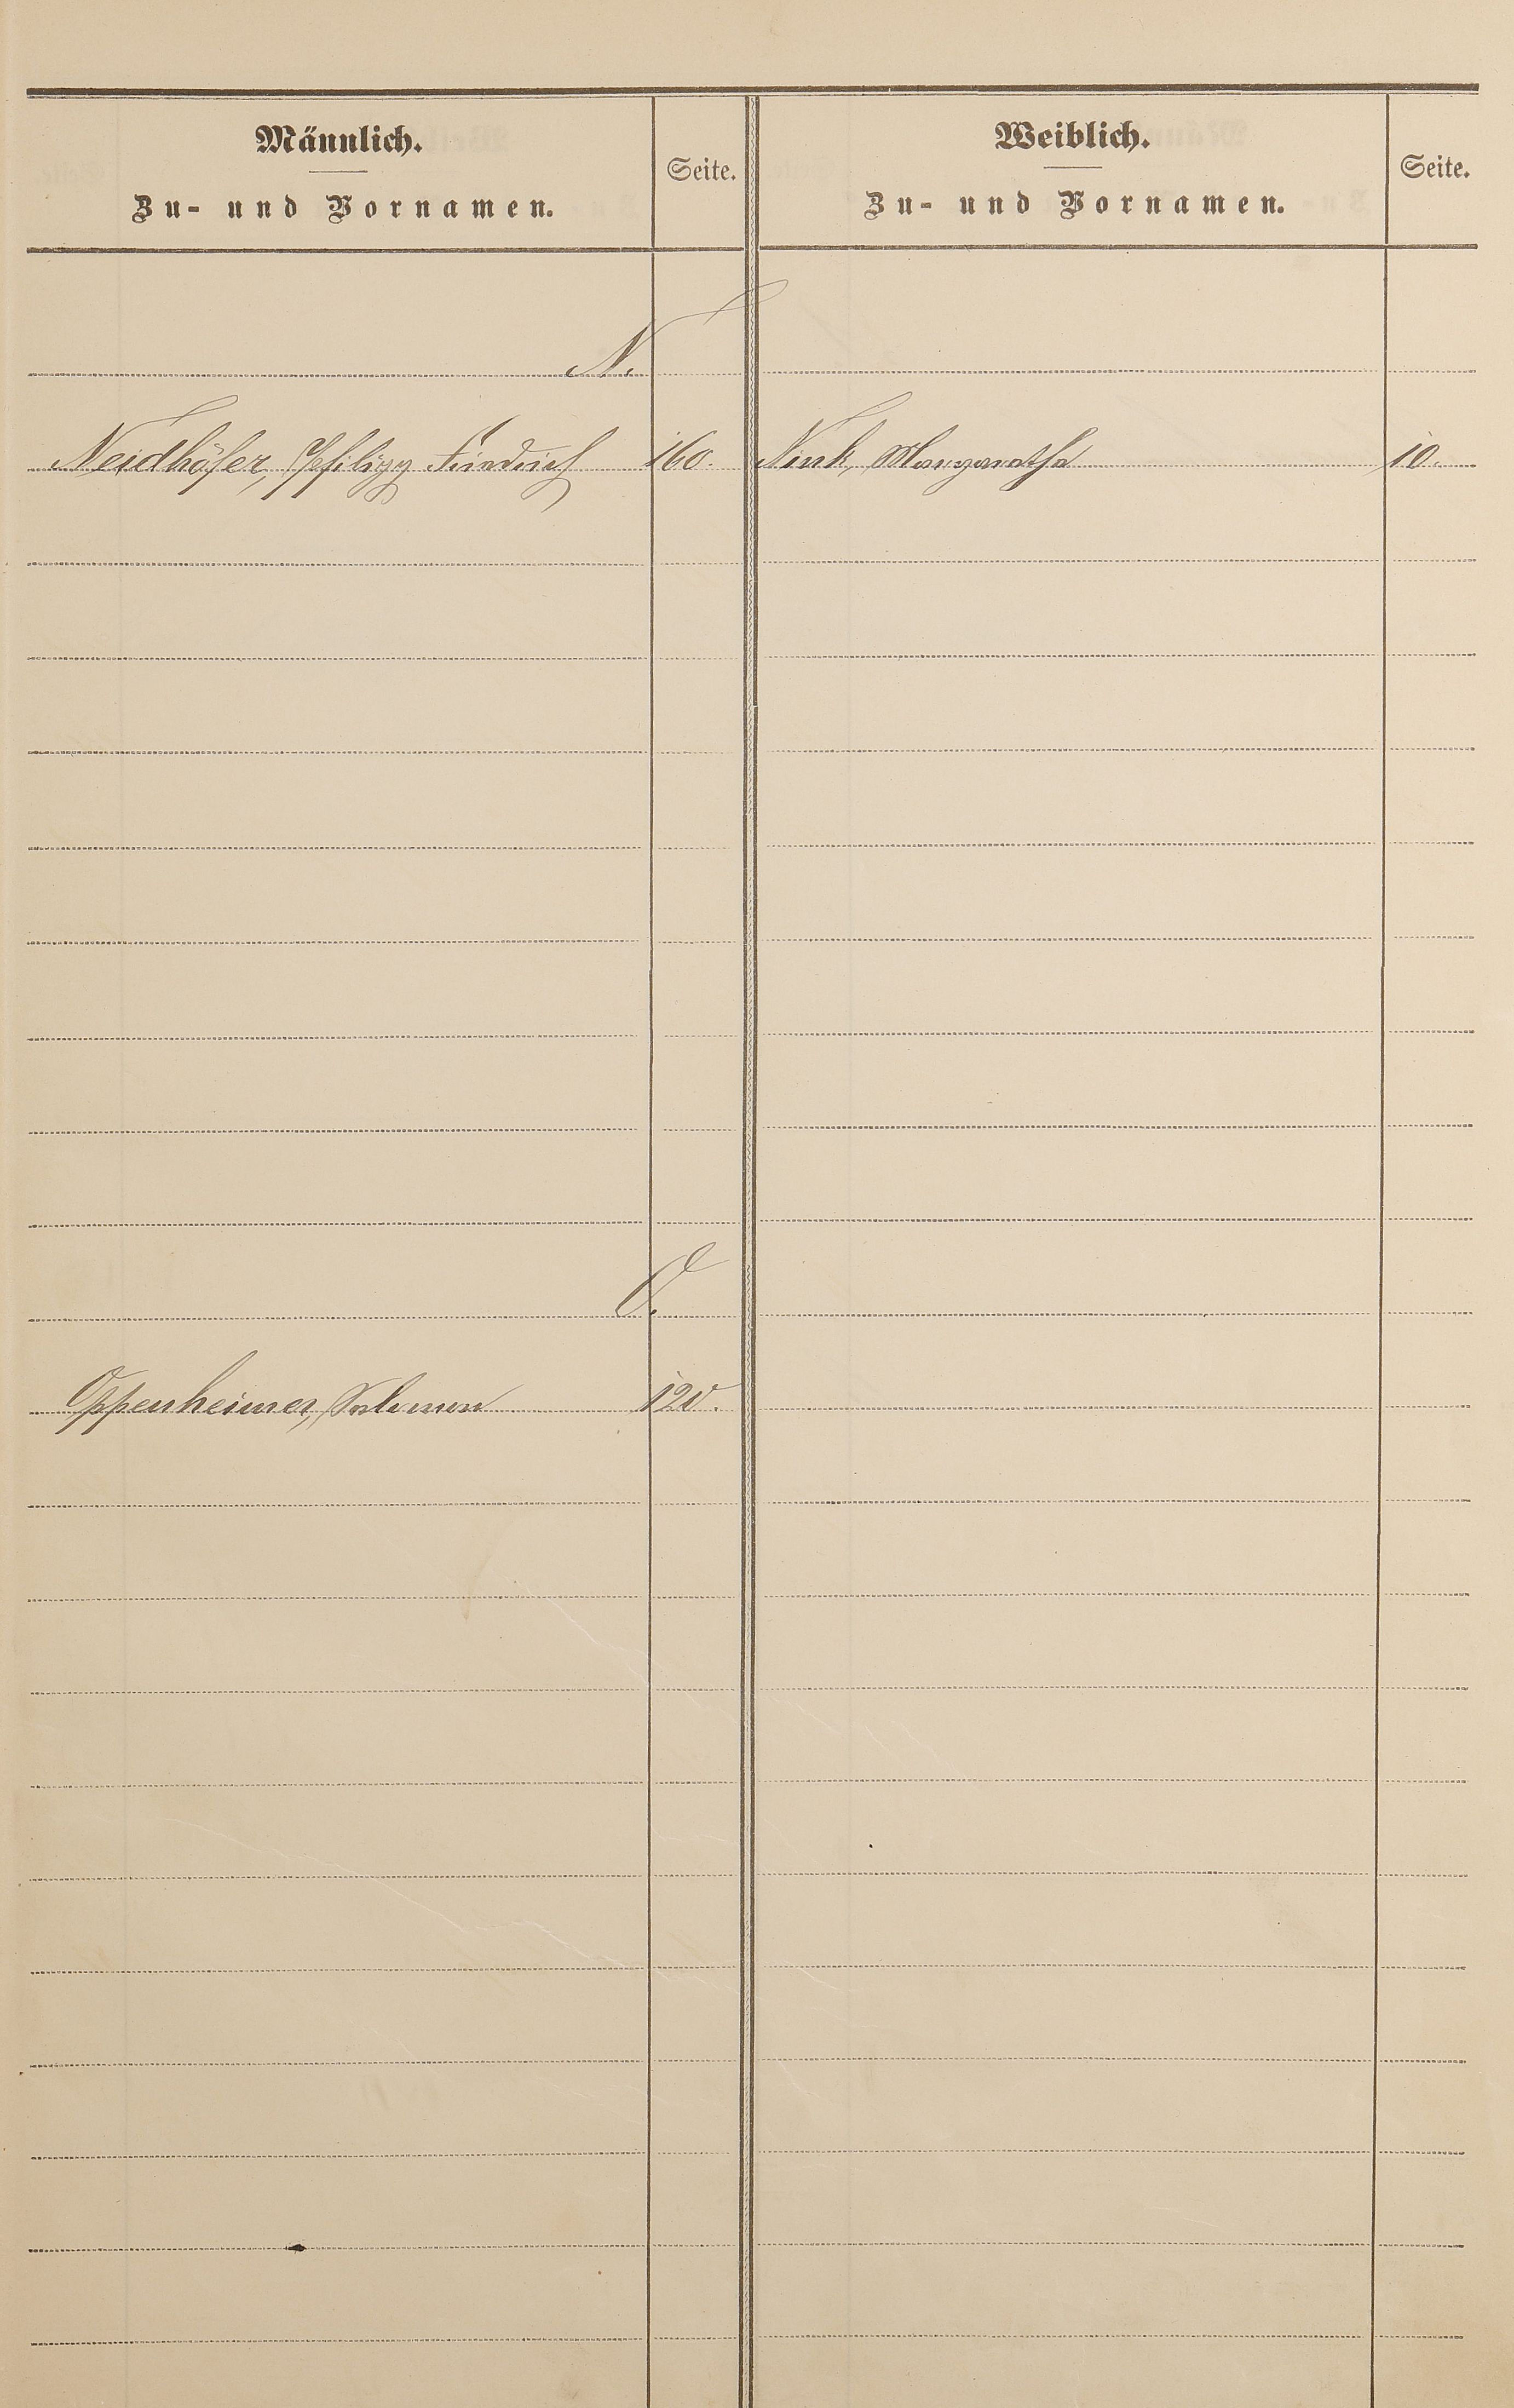 Männlich.
Zu- und Vornamen.
Seite.
Weiblich.
Zu- und Vornamen.
Seite.
N.
Neidhöfer, Philipp Friedrich 160. Nink, Margaretha 10.
O.
Oppenheimer, Salomon 120.